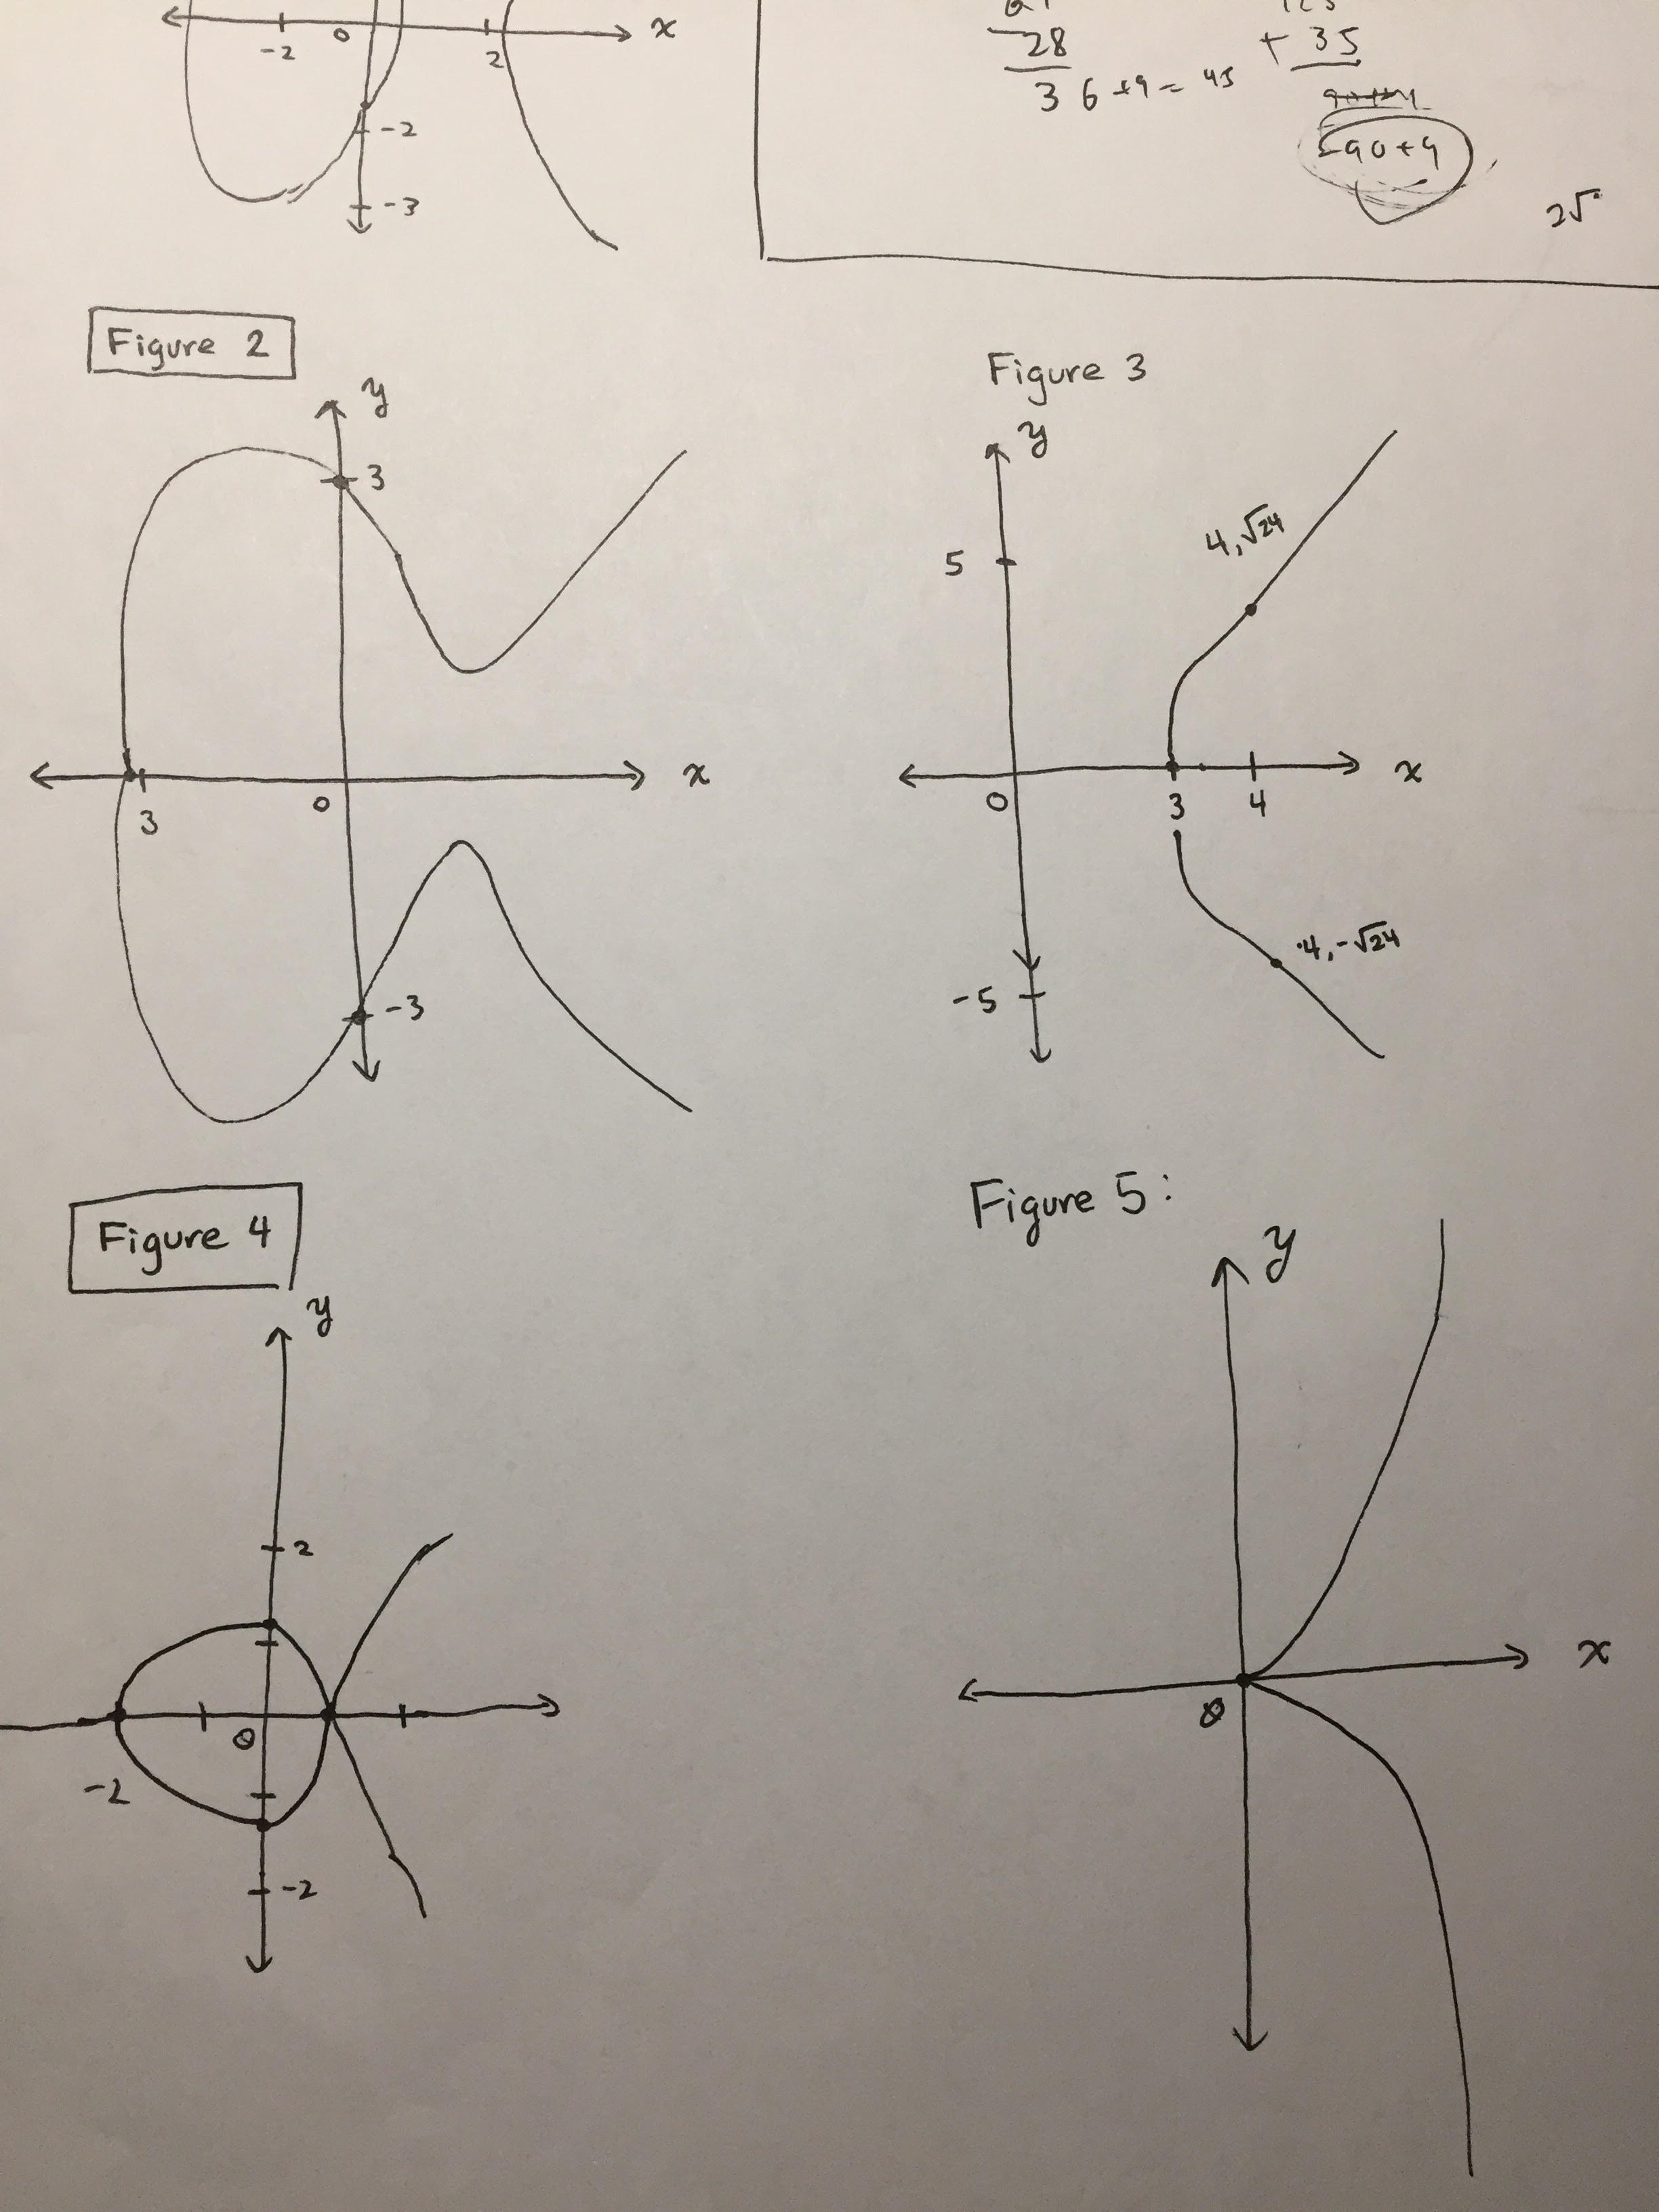 -2 0 2 x
-2
-3
28
3 6 +9 = 45
+ 35
-90+9
2√
Figure 2
y
3
x
3 0
-3
Figure 3
y
5
4,√24
x
0 3 4
4,-√24
-5
Figure 4
y
2
0
-2
-2
Figure 5:
y
x
0